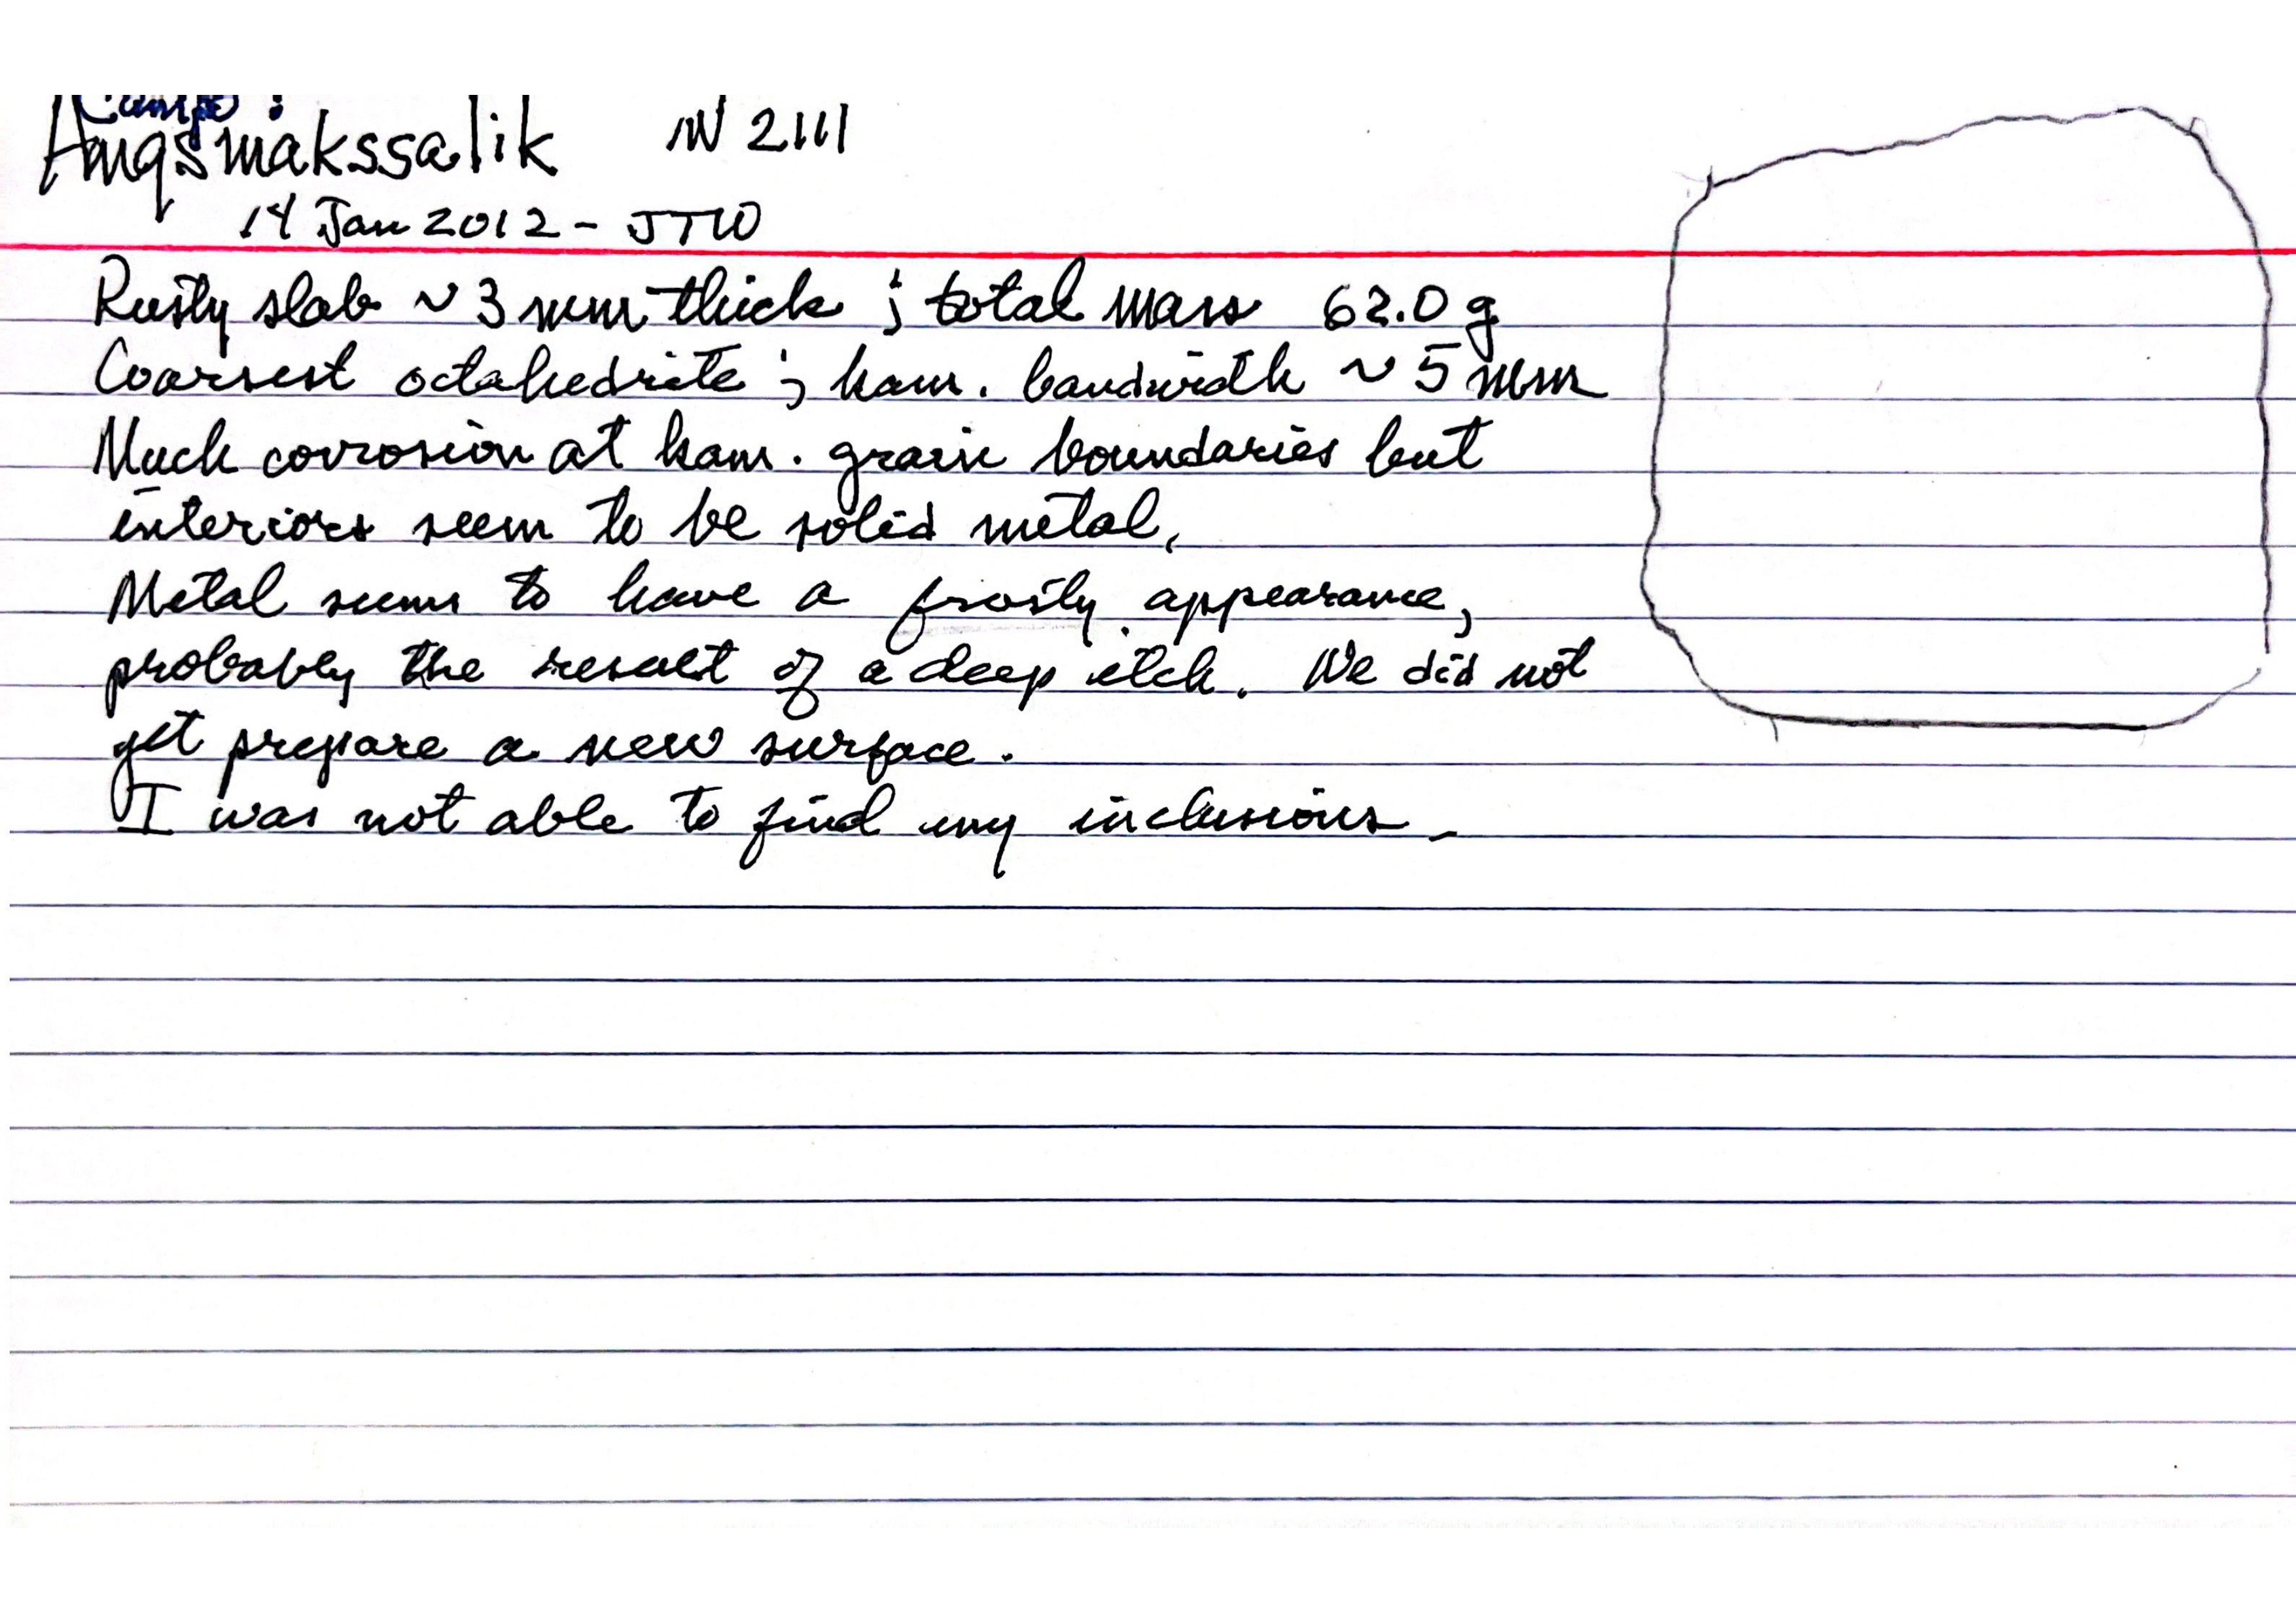 Campo:
IN 2111
14 Jan 2012 - JTW
Rusty slab ~ 3 mm thick ; total mass 62.0 g
Coarsest octahedrite ; kam. bandwidth ~ 5 mm
Much corrosion at kam. grain boundaries but
interiors seem to be solid metal.
Metal seems to have a frosty appearance,
probably the result of a deep etch. We did not
yet prepare a new surface.
I was not able to find any inclusions -